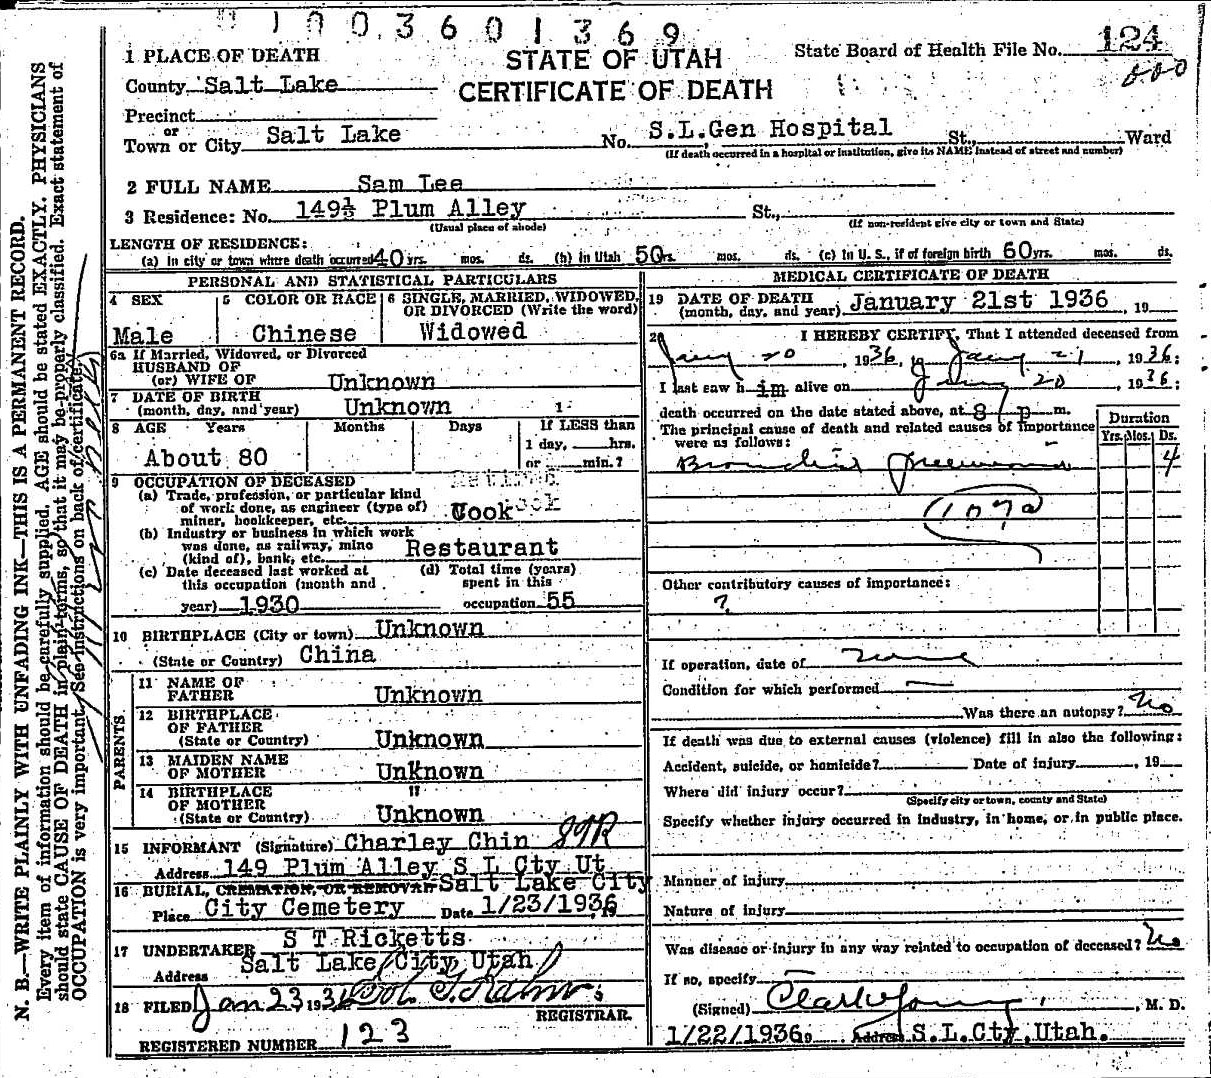 0 1 0 0 3 6 0 1 3 6 9
1 PLACE OF DEATH
STATE OF UTAH
State Board of Health File No. 124
County Salt Lake
CERTIFICATE OF DEATH
000
Precinct
or
Town or City Salt Lake No. S.L.Gen Hospital St., Ward
(If death occurred in a hospital or institution, give its NAME instead of street and number)
2 FULL NAME Sam Lee
3 Residence: No. 149½ Plum Alley St.,
(Usual place of abode) (If non-resident give city or town and State)
LENGTH OF RESIDENCE:
(a) In city or town where death occurred 40 yrs. mos. ds. (b) In Utah 50 yrs. mos. ds. (c) In U. S., if of foreign birth 60 yrs. mos. ds.
PERSONAL AND STATISTICAL PARTICULARS
4 SEX 5 COLOR OR RACE 6 SINGLE, MARRIED, WIDOWED, OR DIVORCED (Write the word)
Male Chinese Widowed
6a If Married, Widowed, or Divorced
HUSBAND OF
(or) WIFE OF Unknown
7 DATE OF BIRTH
(month, day, and year) Unknown
8 AGE Years Months Days If LESS than
1 day, hrs.
About 80 or min.?
9 OCCUPATION OF DECEASED
(a) Trade, profession, or particular kind
of work done, as engineer (type of)
miner, bookkeeper, etc. Cook
(b) Industry or business in which work
was done, as railway, mine
(kind of), bank, etc. Restaurant
(c) Date deceased last worked at
this occupation (month and
year) 1930
(d) Total time (years)
spent in this
occupation 55
10 BIRTHPLACE (City or town) Unknown
(State or Country) China
PARENTS
11 NAME OF
FATHER Unknown
12 BIRTHPLACE
OF FATHER
(State or Country) Unknown
13 MAIDEN NAME
OF MOTHER Unknown
14 BIRTHPLACE "
OF MOTHER
(State or Country) Unknown
15 INFORMANT (Signature) Charley Chin
Address 149 Plum Alley S L Cty Ut
16 BURIAL, CREMATION, OR REMOVAL Salt Lake City
Place City Cemetery Date 1/23/1936, 19
17 UNDERTAKER S T Ricketts
Address Salt Lake City Utah
18 FILED Jan 23 1936
REGISTRAR.
REGISTERED NUMBER 123
MEDICAL CERTIFICATE OF DEATH
19 DATE OF DEATH
(month, day, and year) January 21st 1936, 19
20 I HEREBY CERTIFY, That I attended deceased from
Jany 20, 1936, to Jany 21, 1936;
I last saw him alive on Jany 20, 1936;
death occurred on the date stated above, at 8 p m.
The principal cause of death and related causes of importance
were as follows:
Duration
Yrs. Mos. Ds.
Bronchial Pneumonia 4
107a
Other contributory causes of importance:
?
If operation, date of none
Condition for which performed
Was there an autopsy? No
If death was due to external causes (violence) fill in also the following:
Accident, suicide, or homicide? Date of injury, 19
Where did injury occur?
(Specify city or town, county and State)
Specify whether injury occurred in industry, in home, or in public place.
Manner of injury
Nature of injury
Was disease or injury in any way related to occupation of deceased? No
If so, specify
(Signed) Clark Young, M. D.
1/22/1936 Address S.L.Cty, Utah.
N. B.—WRITE PLAINLY WITH UNFADING INK—THIS IS A PERMANENT RECORD.
Every item of information should be carefully supplied. AGE should be stated EXACTLY. PHYSICIANS
should state CAUSE OF DEATH in plain terms, so that it may be properly classified. Exact statement of
OCCUPATION is very important. See instructions on back of certificate.